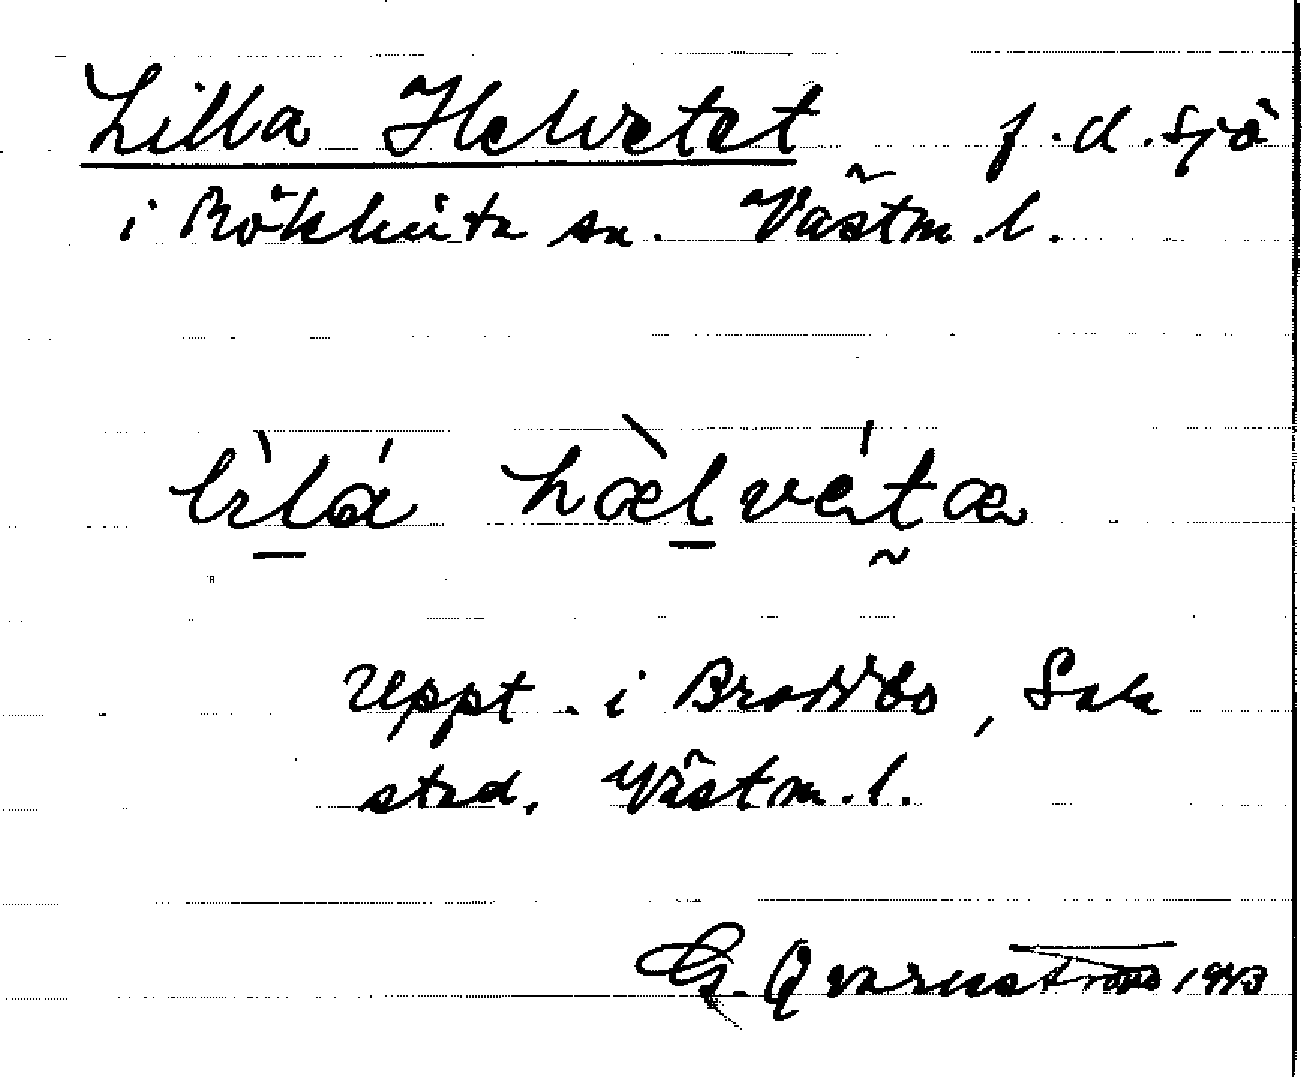 Lilla Helvetet f.d. sjö
i Rökhúta sn. Västm.l.
lìlá hælvétæ
Uppt. i Broddbo, Sala
stad. Västm.l.
G. Qvarnström 1943